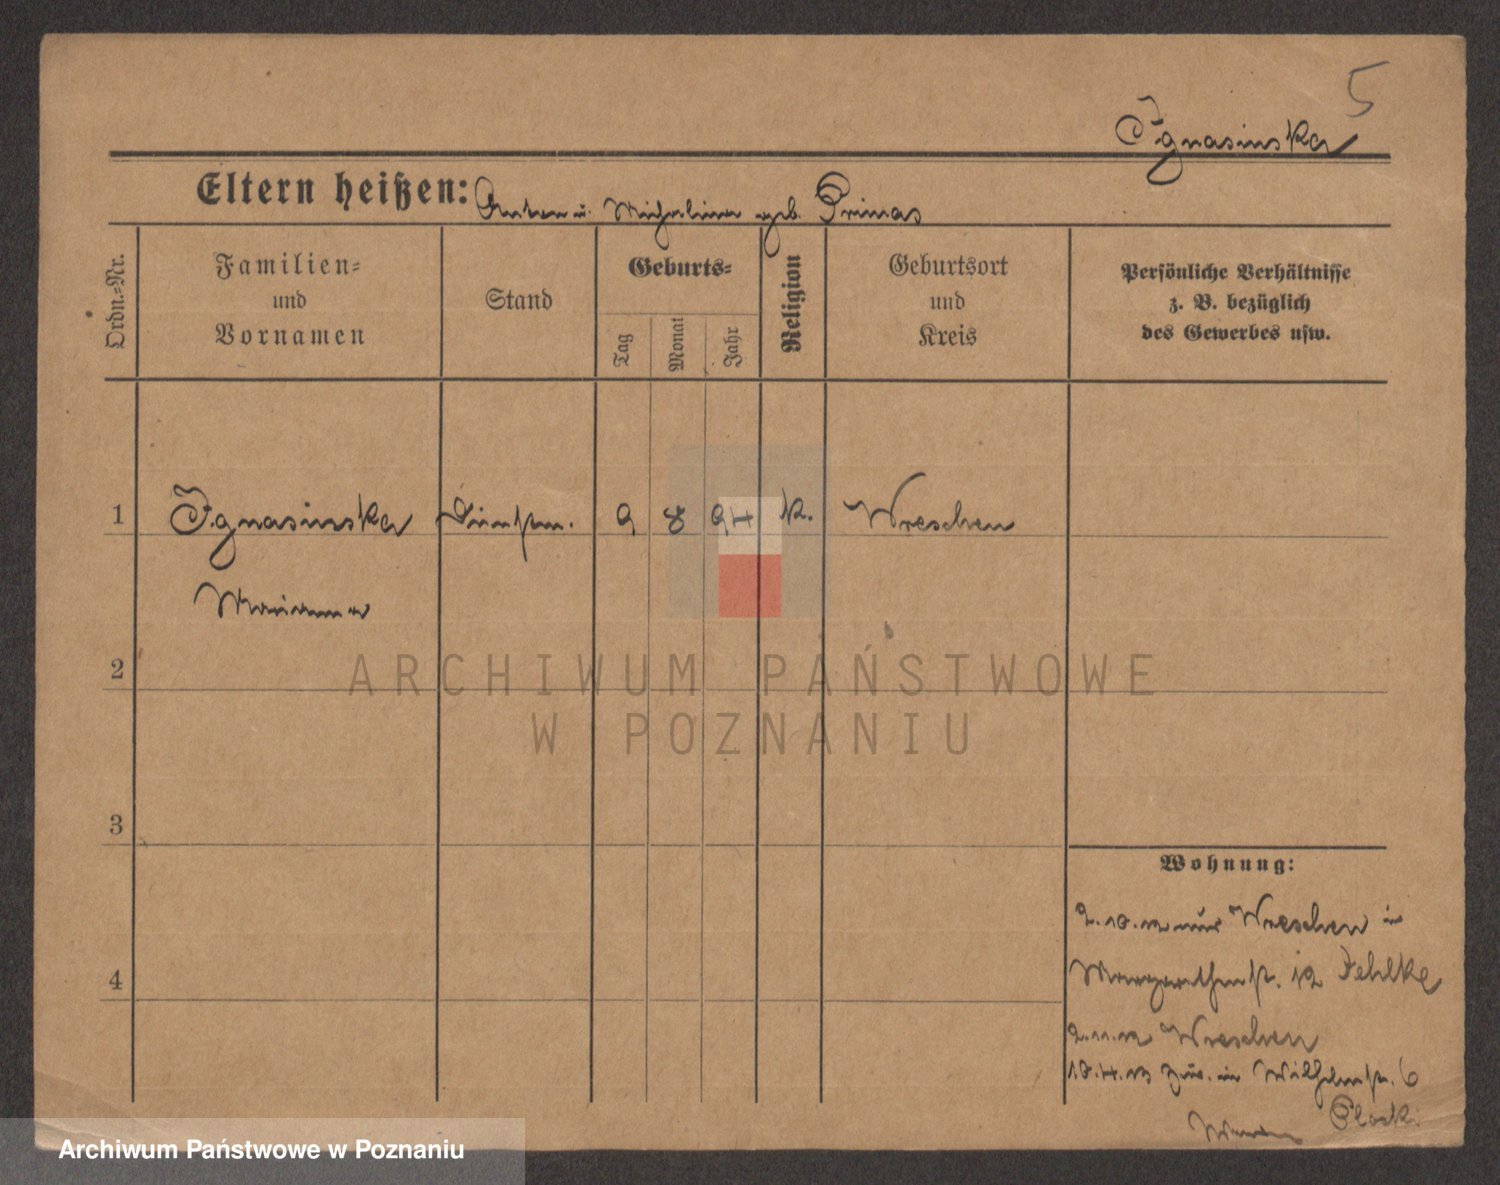 5
Ignasinska
Eltern heißen: Anton u. Michalina geb. Primas
Ordn.=Nr.
Familien=
und
Vornamen
Stand
Geburts=
Tag
Monat
Jahr
Religion
Geburtsort
und
Kreis
Persönliche Verhältnisse
z. B. bezüglich
des Gewerbes usw.
1 Ignasinska 9 8 94 k. Wreschen
Marianna
2
ARCHIWUM PAŃSTWOWE
W POZNANIU
3
Wohnung:
2.10.12 aus Wreschen in
4
Margarethenst. 12 Fehlke
2.11.12 Wreschen
10.4.13 zur. in Wilhelmstr. 6
Plocki
Archiwum Państwowe w Poznaniu